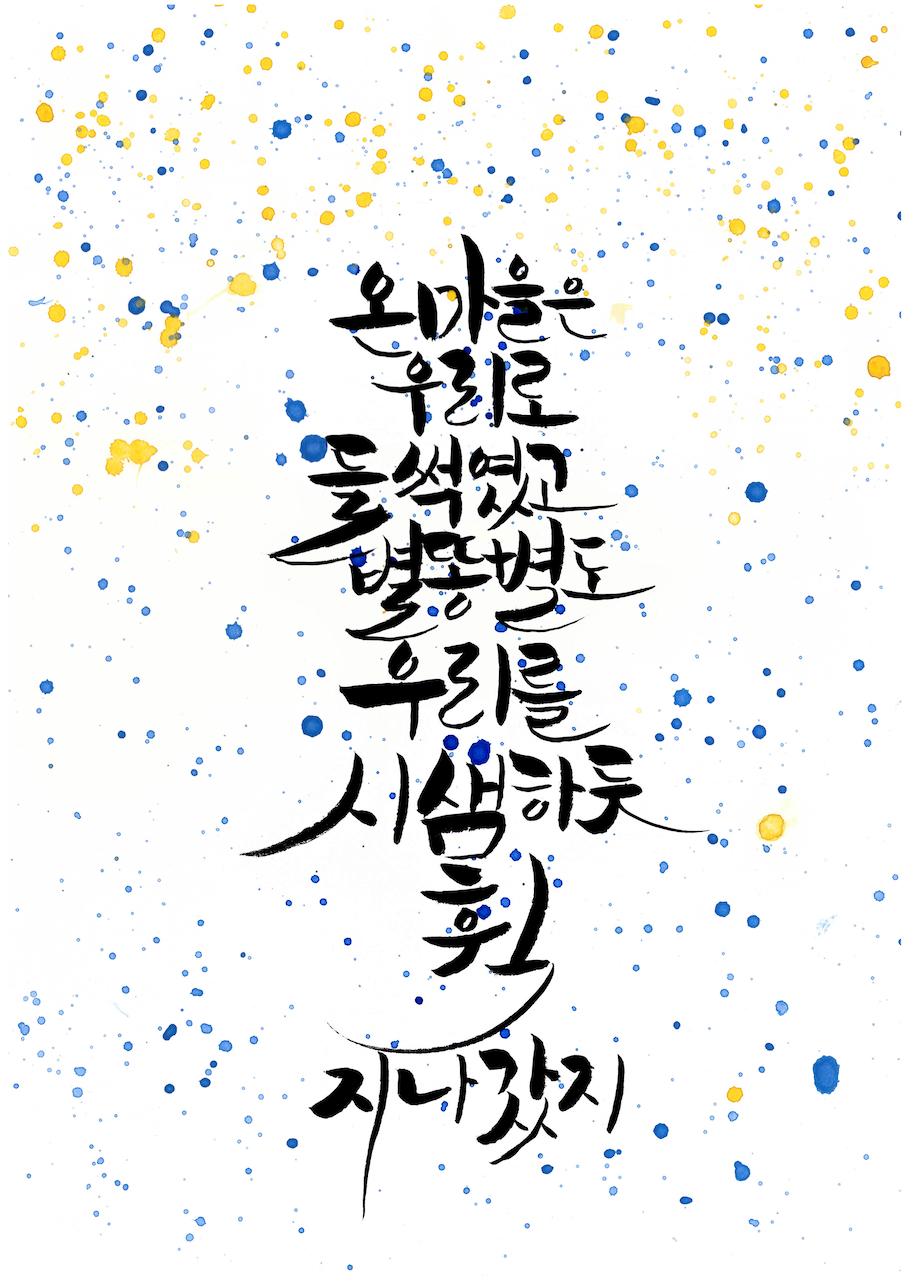 온마을은
우리로
들썩였고
별똥별도
우리를
시샘하듯
휜
지나갔지